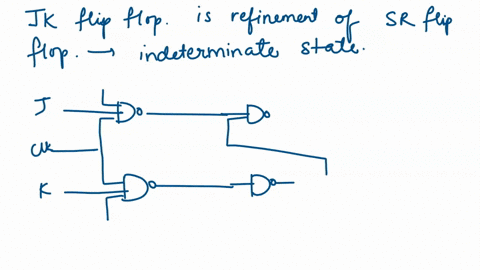 JK flip flop. is refinement of SR flip
flop. → indeterminate state.
J
Clk
K